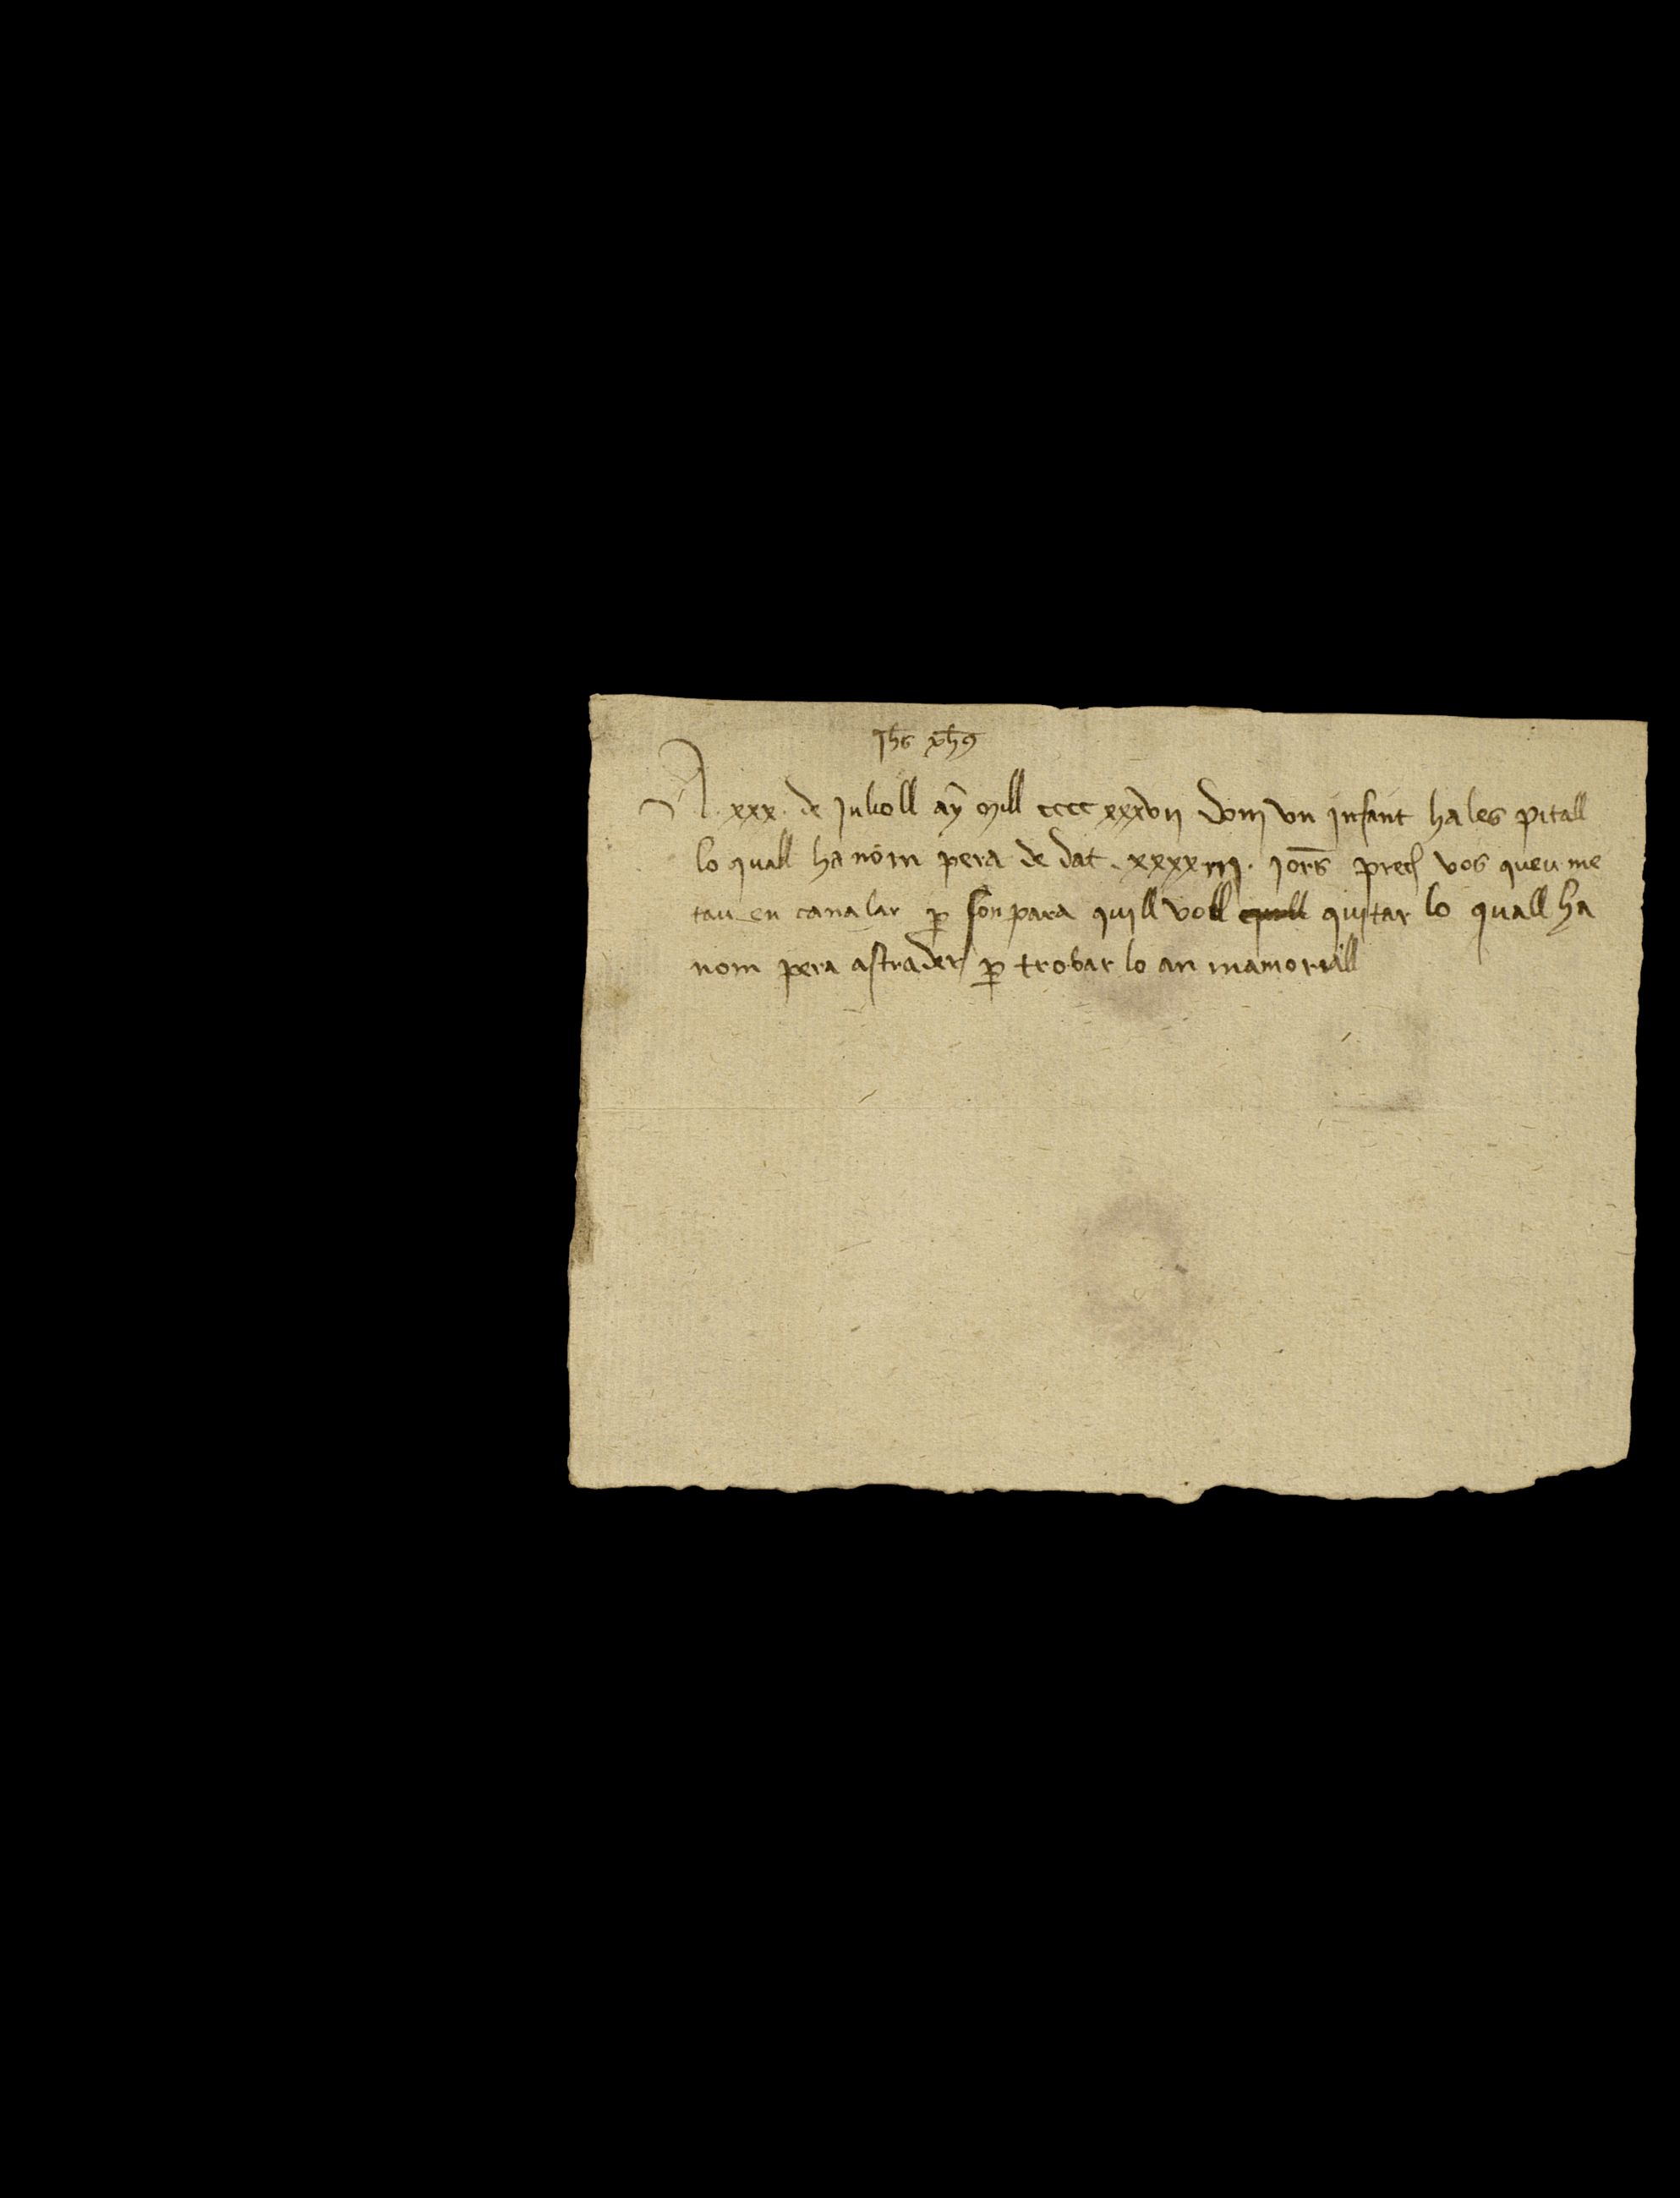 Jhs xhs
A xxx de Julioll ay mill cccc xxxvii dom un infant ha les pitall
lo quall ha nom pera de dat xxxxiii jors prech vos queu me
tau en canalar per son para quill voll quitar lo quall ha
nom pera astrader per trobar lo an mamoriall